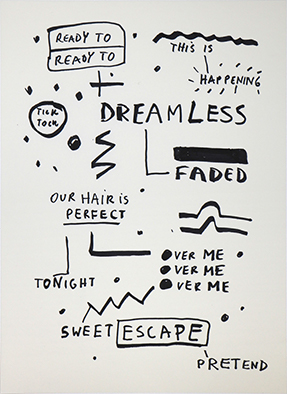 READY TO
READY TO
THIS IS
HAPPENING
TICK
TOCK
DREAMLESS
FADED
OUR HAIR IS
PERFECT
OVER ME
OVER ME
OVER ME
TONIGHT
SWEET ESCAPE
PRETEND